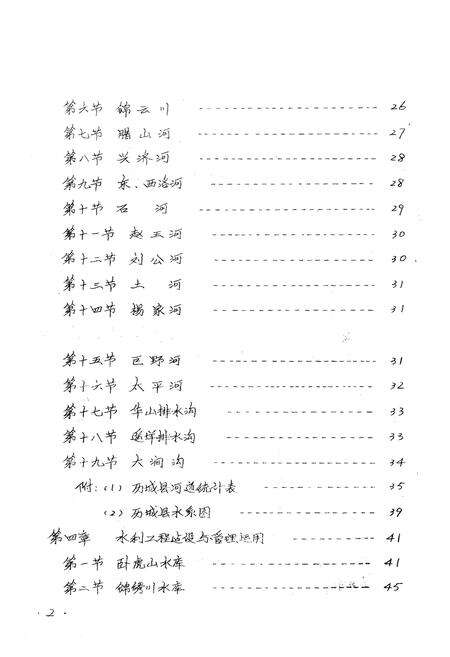 第六节 锦云川 26
第七节 腊山河 27
第八节 兴济河 28
第九节 东、西洛河 28
第十节 石河 29
第十一节 赵王河 30
第十二节 刘公河 30
第十三节 土河 31
第十四节 杨家河 31
第十五节 巨野河 31
第十六节 太平河 32
第十七节 华山排水沟 33
第十八节 排水沟 33
第十九节 大涧沟 34
附:(1)历城县河道统计表 35
(2)历城县水系图 39
第四章 水利工程建设与管理运用 41
第一节 卧虎山水库 41
第二节 锦绣川水库 45
·2·